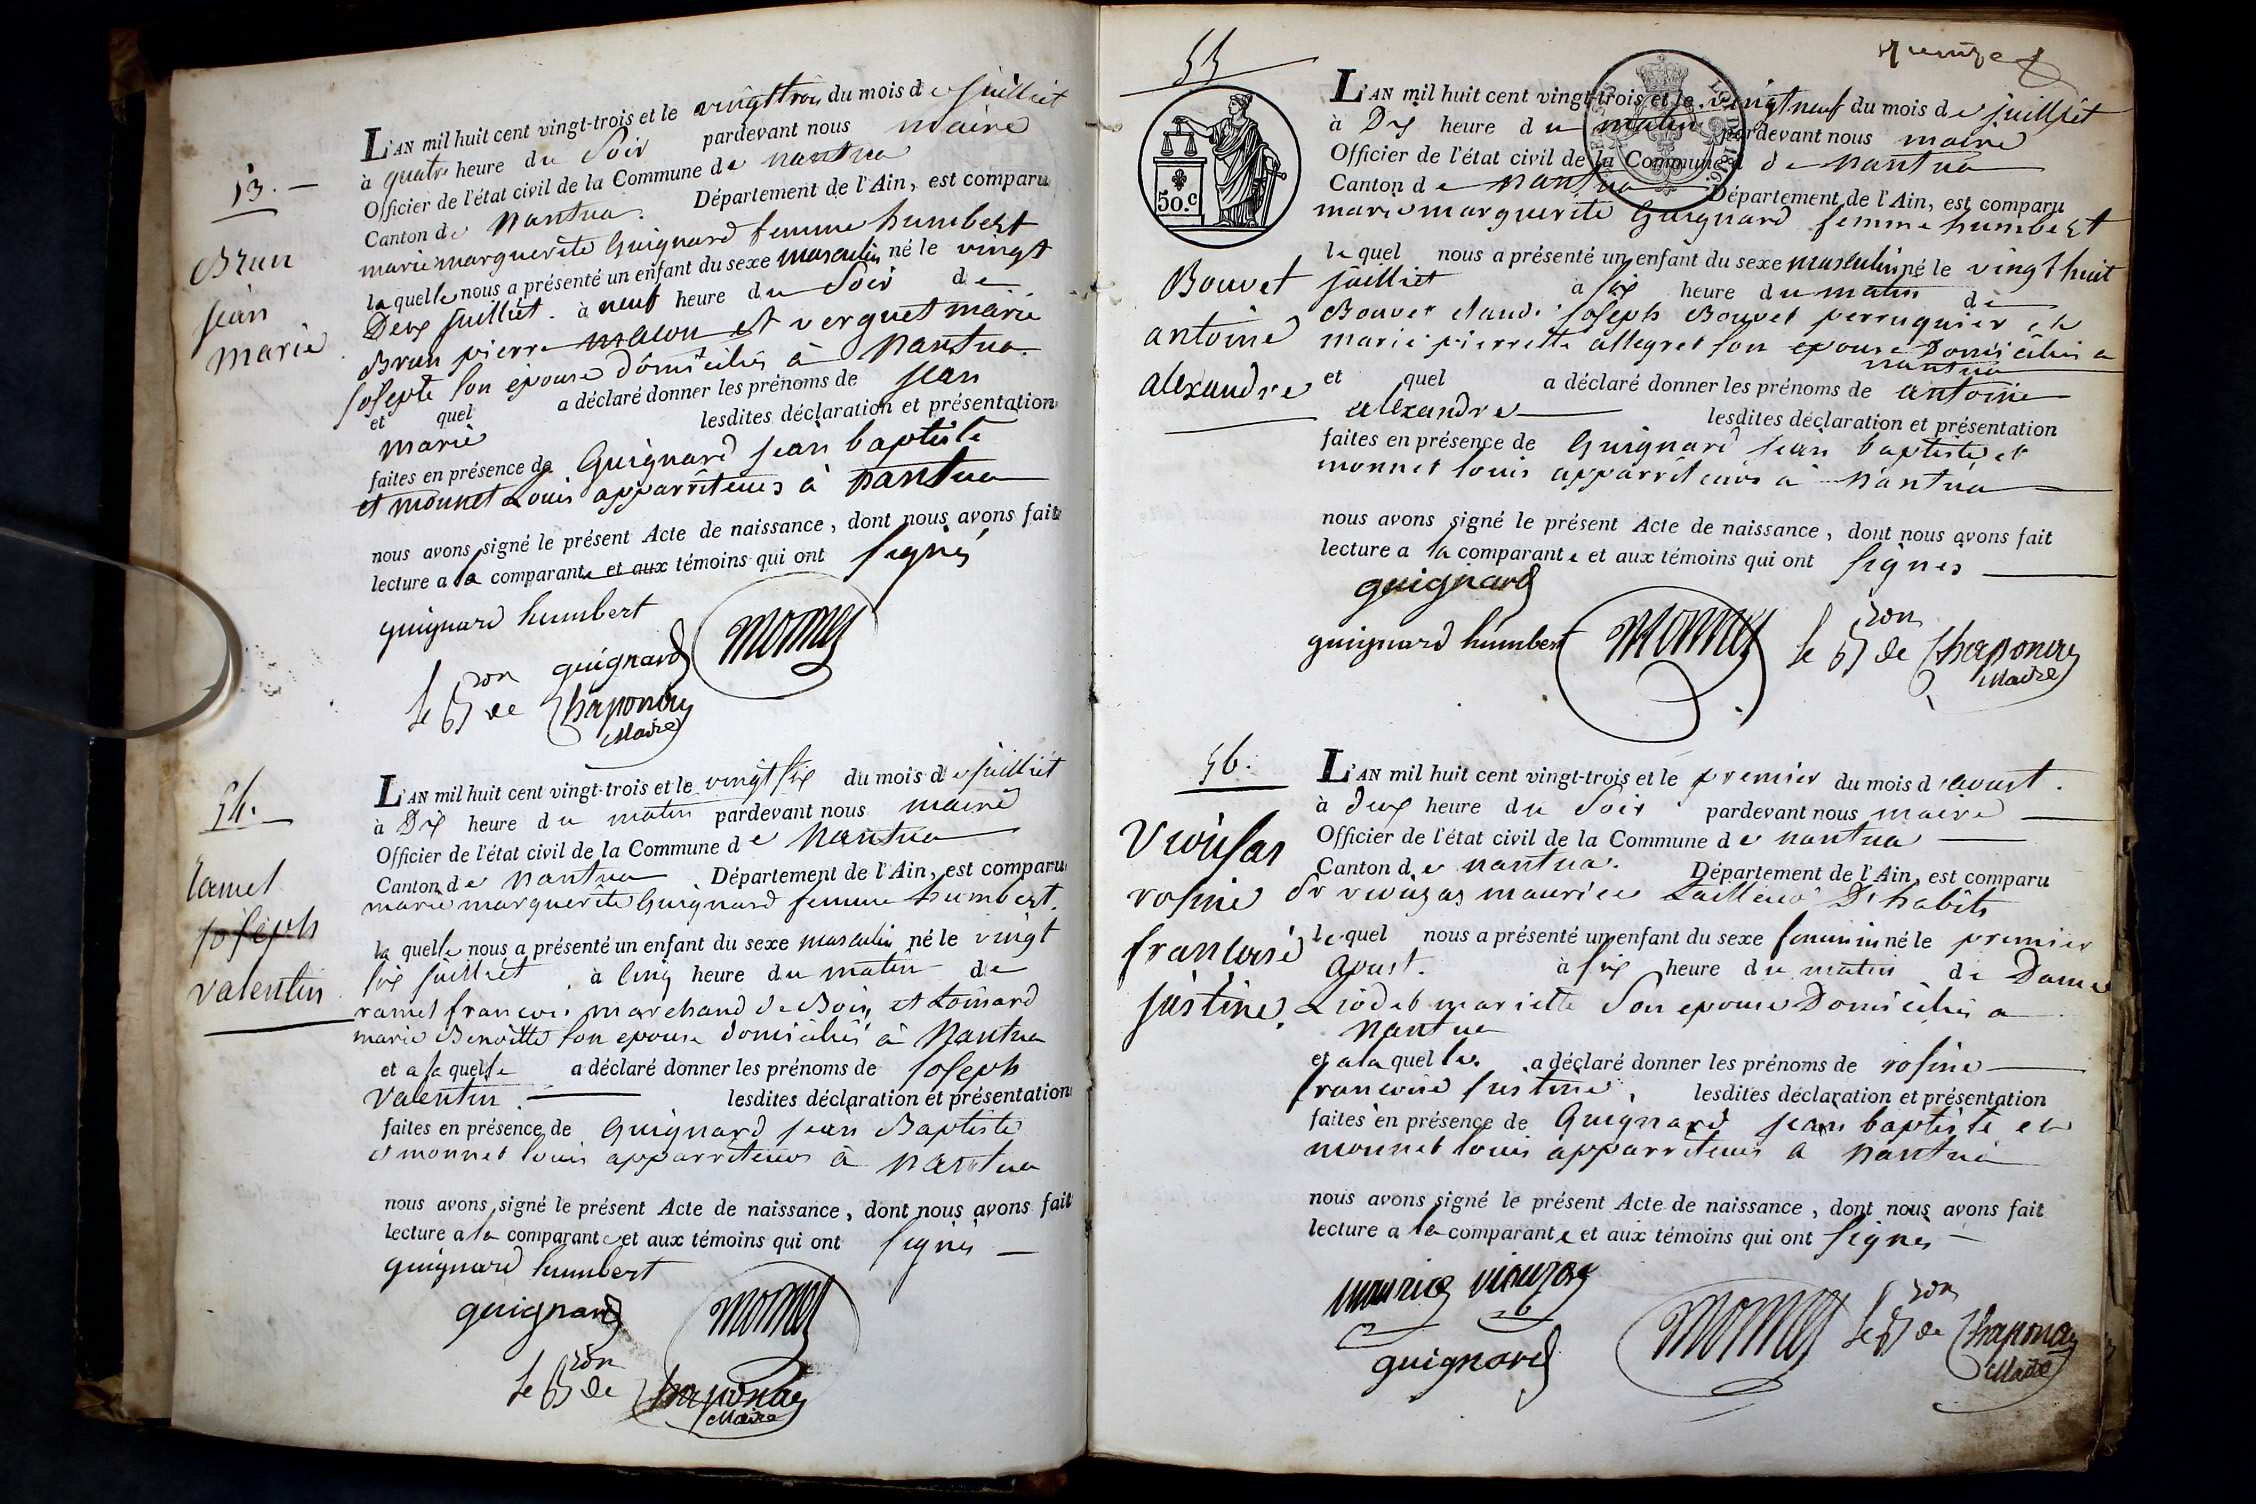 53. —
Brun
jean
marie
L'AN mil huit cent vingt-trois et le vingt trois du mois de juilliet
à quatre heure du Soir pardevant nous maire
Officier de l'état civil de la Commune de nantua
Canton de Nantua. Département de l'Ain, est comparu
marie marguerite Guignard femme humbert
laquelle nous a présenté un enfant du sexe masculin né le vingt
Deux juilliet. à neuf heure du Soir de
Brun pierre macon et verguet marie
josepte son épouse domiciliés à Nantua.
et quel a déclaré donner les prénoms de jean
marie lesdites déclaration et présentation
faites en présence de Guignard jean baptiste
et monnet Louis apparriteurs à nantua
nous avons signé le présent Acte de naissance, dont nous avons fait
lecture a la comparante et aux témoins qui ont signés
guignard humbert
guignard monnet
le Bon de Chaponay
Maire
54. —
ramel
joseph
valentin
L'AN mil huit cent vingt-trois et le vingt six du mois de juilliet
à Dix heure du matin pardevant nous maire
Officier de l'état civil de la Commune de Nantua
Canton de Nantua Département de l'Ain, est comparu
marie marguerite Guignard femme humbert.
la quelle nous a présenté un enfant du sexe masculin né le vingt
six juilliet à cinq heure du matin de
ramel francois marchand de Bois et Loinard
marie Benoitte son epouse domiciliés à Nantua
et a la quelle a déclaré donner les prénoms de joseph
Valentin. lesdites déclaration et présentation
faites en présence de Guignard jean Baptiste
et monnet louis apparriteurs à nantua
nous avons signé le présent Acte de naissance, dont nous avons fait
lecture a la comparante et aux témoins qui ont signés —
guignard humbert
guignard monnet
le Bon de Chaponay
Maire
quinze
55
50.c
1816.
Bouvet
antoine
alexandre
L'AN mil huit cent vingt-trois et le vingt neuf du mois de juilliet
à Dix heure du matin pardevant nous maire
Officier de l'état civil de la Commune de Nantua
Canton de Nantua Département de l'Ain, est comparu
marie marguerite Guignard femme humbert
le quel nous a présenté un enfant du sexe masculin né le vingt huit
juilliet à six heure du matin de
Bouvet claude joseph Bouvet perruquier et
marie pierrette allegret son epouse Domiciliés a
nantua
et quel a déclaré donner les prénoms de antoine
alexandre lesdites déclaration et présentation
faites en présence de Guignard jean baptiste et
monnet louis apparriteurs a Nantua
nous avons signé le présent Acte de naissance, dont nous avons fait
lecture a la comparante et aux témoins qui ont signés
guignard
guignard humbert monnet le Bon de Chaponay
Maire
56.
Viousas
rosine
francoise
justine.
L'AN mil huit cent vingt-trois et le premier du mois d'aoust.
à deux heure du Soir pardevant nous maire
Officier de l'état civil de la Commune de nantua
Canton de nantua. Département de l'Ain, est comparu
Sr viouzas maurice tailleur D'habits
le quel nous a présenté un enfant du sexe feminin né le premier
Aoust. à six heure du matin de Dame
Liodet mariette Son epouse Domiciliés a
Nantua
et a la quelle a déclaré donner les prénoms de rosine
francoise justine. lesdites déclaration et présentation
faites en présence de Guignard jean baptiste et
monnet louis apparriteurs a Nantua
nous avons signé le présent Acte de naissance, dont nous avons fait
lecture a la comparante et aux témoins qui ont signés —
maurice viouzas
guignard monnet le Bon de Chaponay
Maire